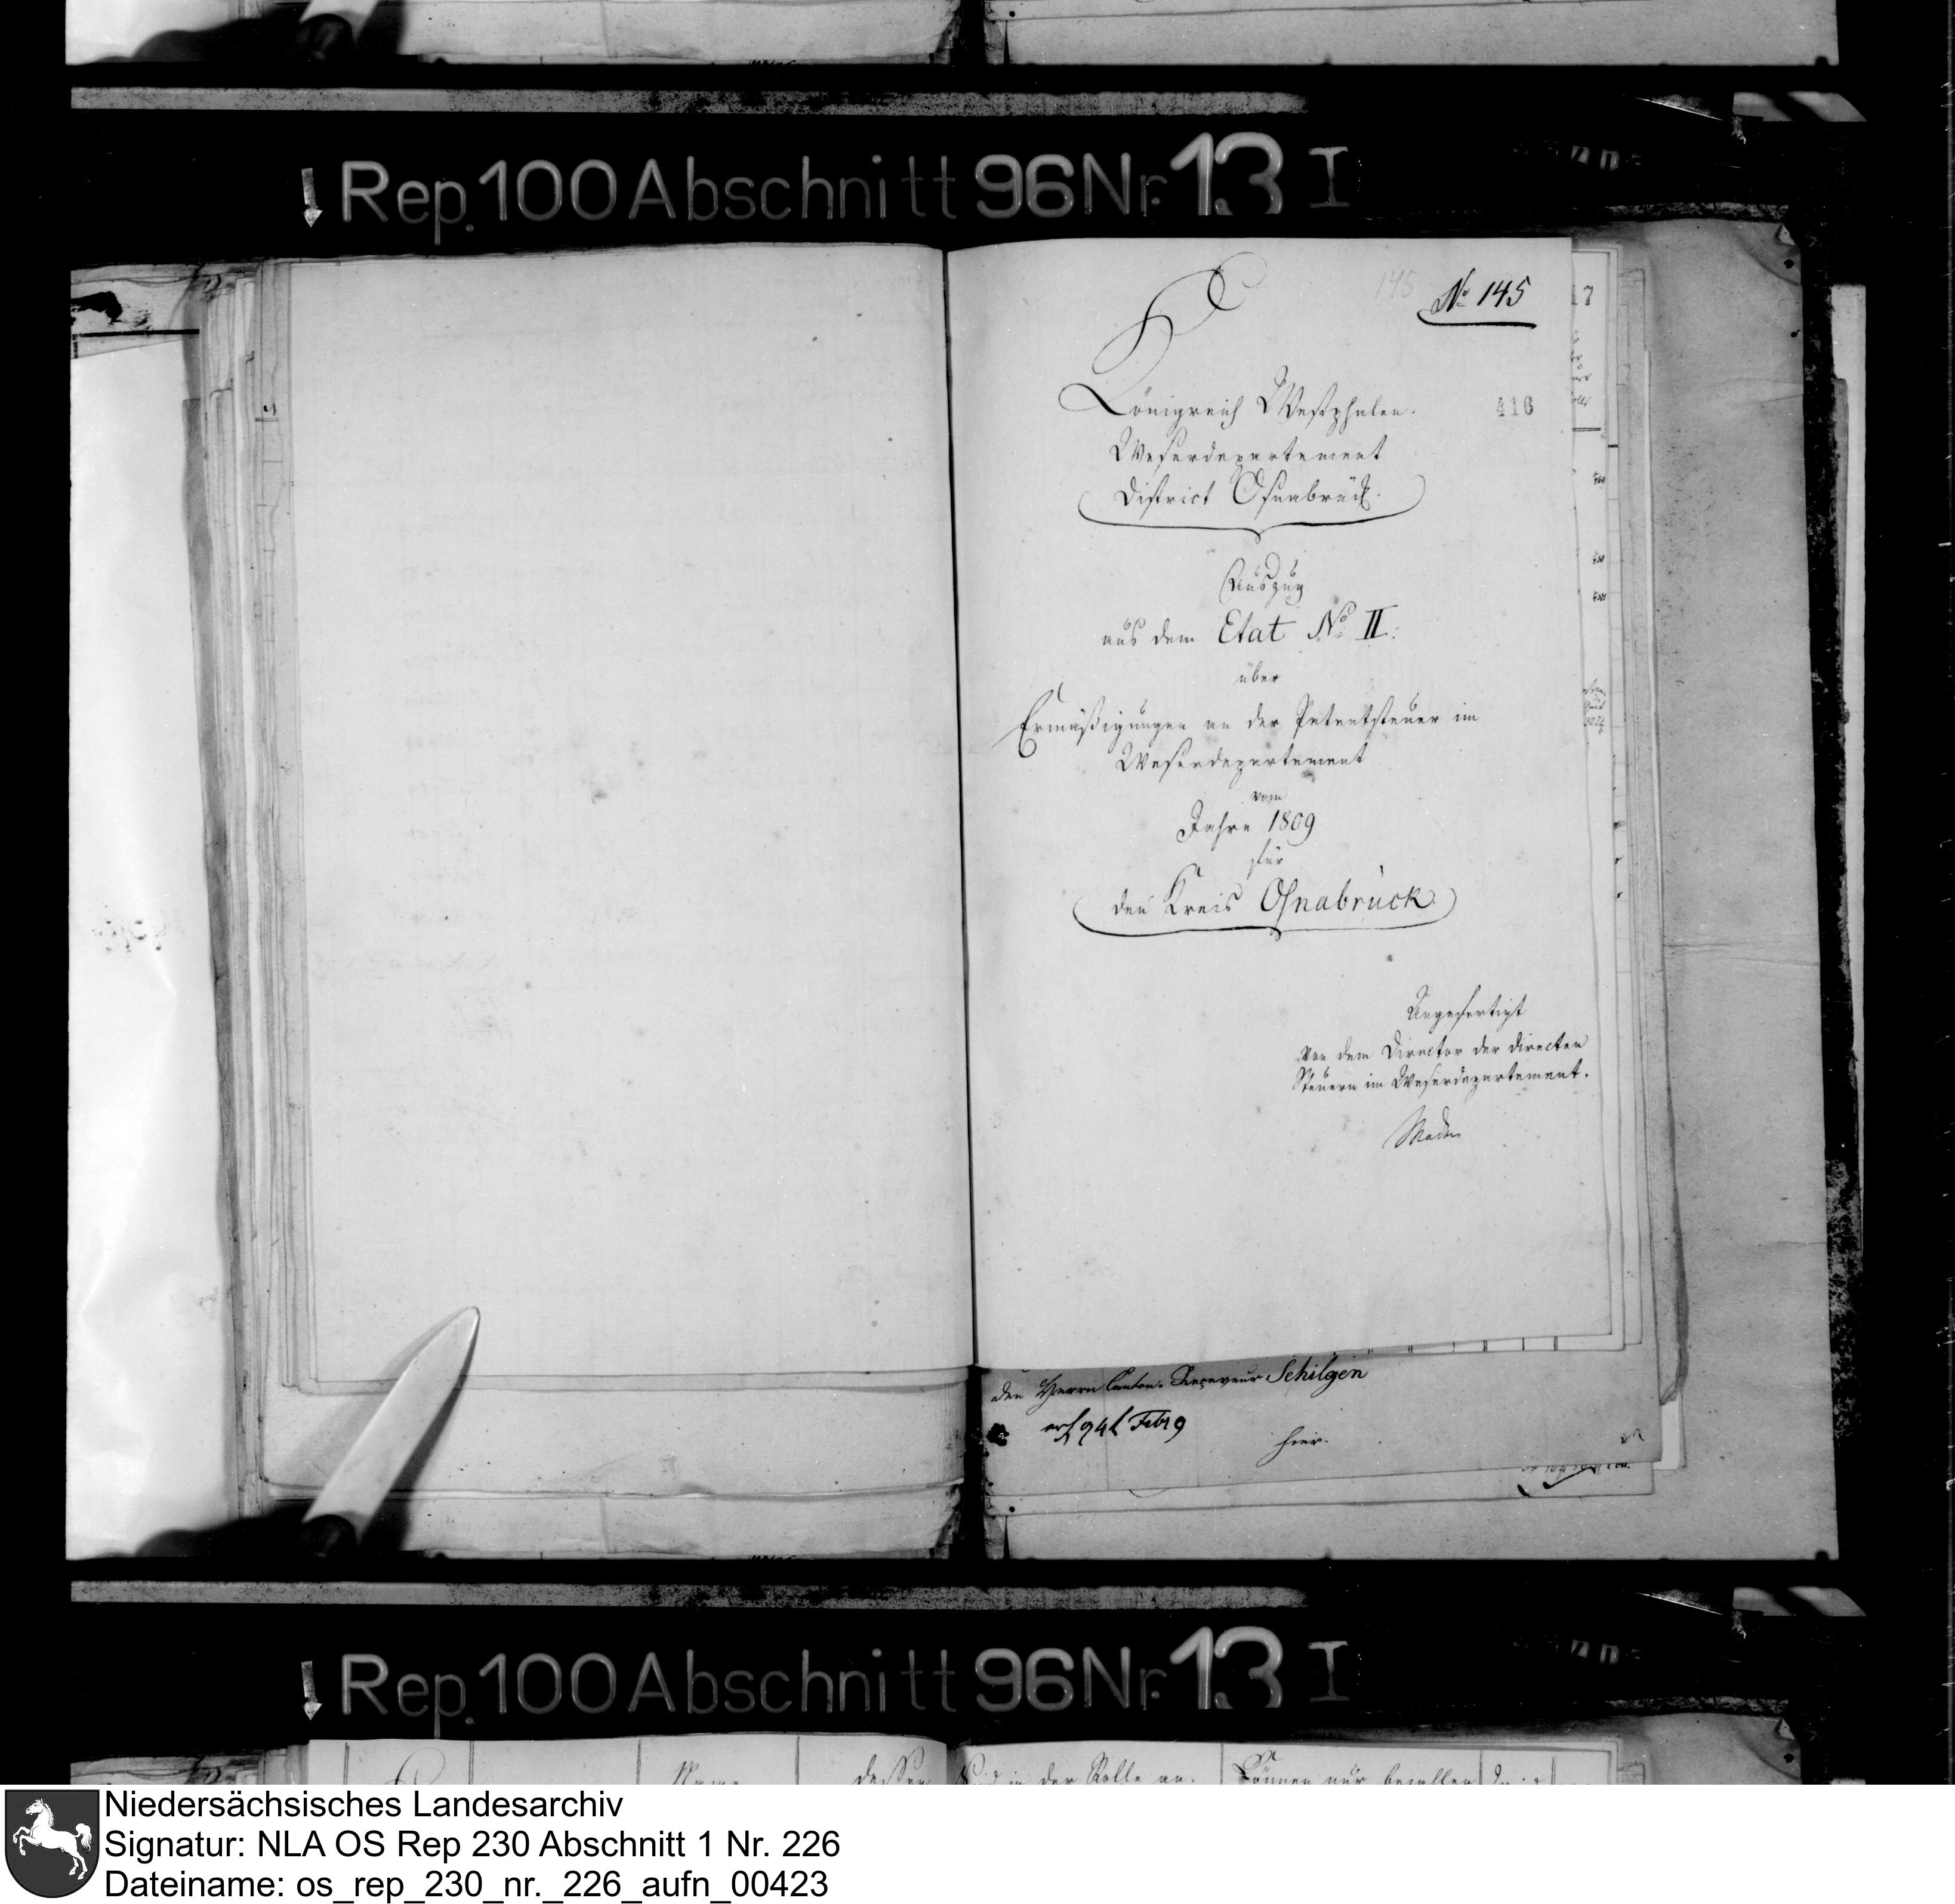 Rep. 100 Abschnitt 96 Nr. 13 I
145
No 145
Königreich Westphalen.
416
Weserdepartement
District Osnabrück.
Auszug
aus dem Etat No II.
über
Ermäßigungen an der Patentsteuer im
Weserdepartement
vom
Jahre 1809
für
den Kreis Osnabrück
Angefertigt
von dem Director der directen
Steuern im Weserdepartement.
den Herrn Canton-Receveur Schilgen
Febr 9
hier.
Rep. 100 Abschnitt 96 Nr. 13 I
Name dessen in der Rolle an- Können nur bezahlen
Niedersächsisches Landesarchiv
Signatur: NLA OS Rep 230 Abschnitt 1 Nr. 226
Dateiname: os_rep_230_nr._226_aufn_00423